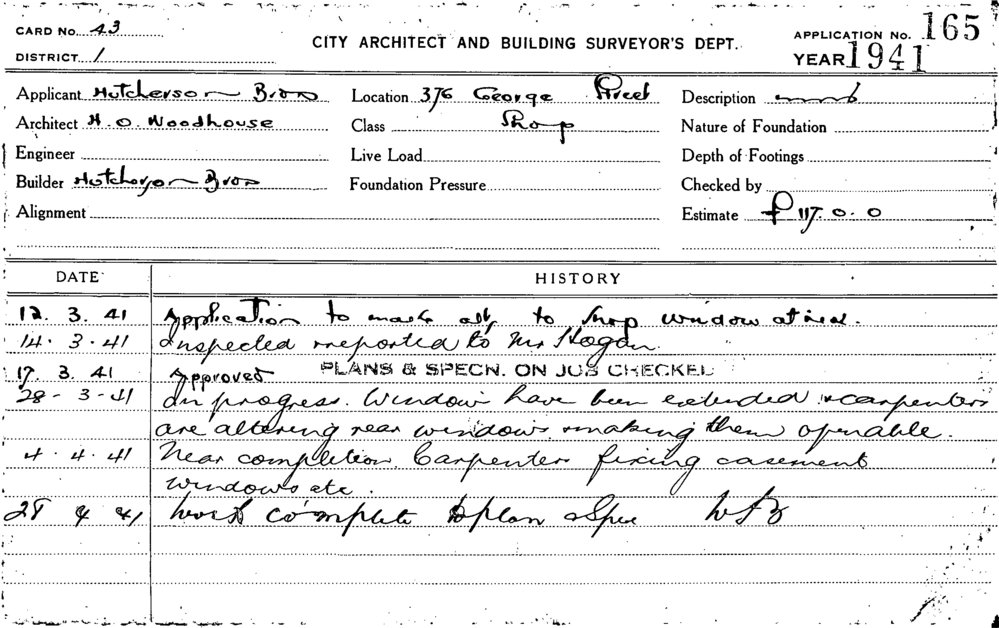 CARD No. 43
DISTRICT 1
CITY ARCHITECT AND BUILDING SURVEYOR'S DEPT.
APPLICATION No. 165
YEAR 1941
Applicant Hutcherson Bros Location 376 George Street Description
Architect H. O. Woodhouse Class Shop Nature of Foundation
Engineer Live Load Depth of Footings
Builder Hutcherson Bros Foundation Pressure Checked by
Alignment Estimate £ 117. 0. 0
DATE HISTORY
12. 3. 41 Application to make to Shop window at rear.
14. 3. 41 Inspected & reported to Mr Hogan.
17. 3. 41 Approved PLANS & SPECN. ON JOB CHECKED
28 - 3 - 41 In progress. Window have been extended & carpenters
are altering rear windows making them openable.
4. 4. 41 Near completion. Carpenters fixing casement
windows etc.
28 4 41 Work complete to plan & Spec